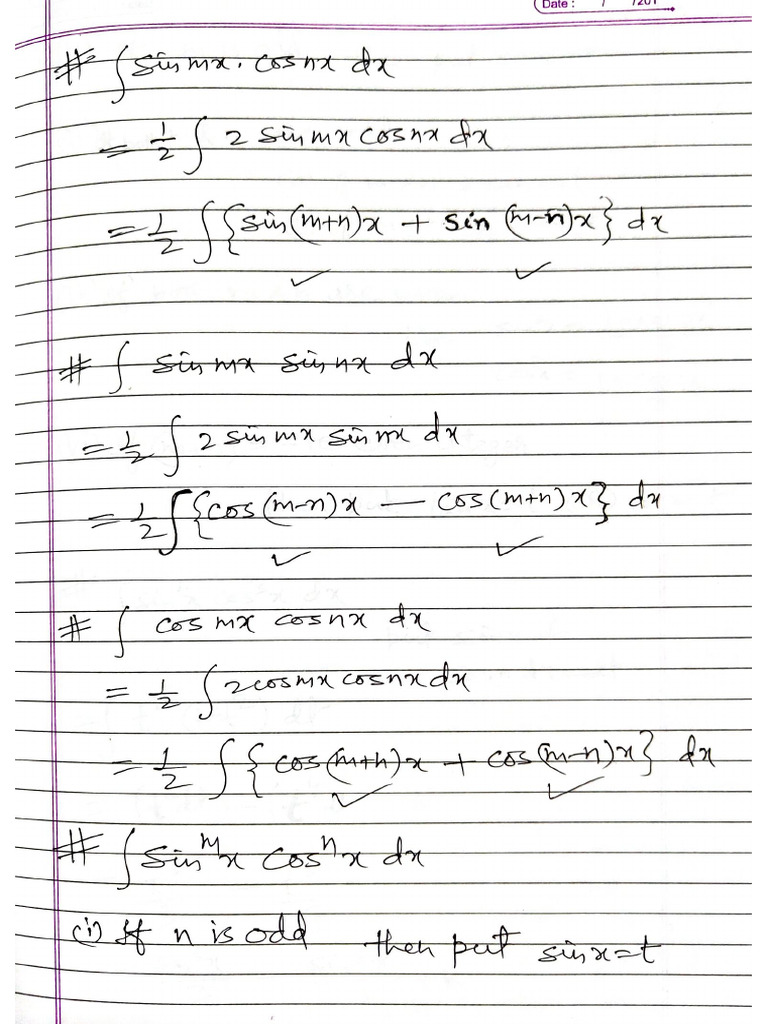 Date : / /201
# ∫ sin mx . cos nx dx
= 1/2 ∫ 2 sin mx cos nx dx
= 1/2 ∫ {sin(m+n)x + sin (m-n)x} dx
# ∫ sin mx sin nx dx
= 1/2 ∫ 2 sin mx sin nx dx
= 1/2 ∫ {cos(m-n)x — cos(m+n)x} dx
# ∫ cos mx cos nx dx
= 1/2 ∫ 2 cos mx cos nx dx
= 1/2 ∫ {cos(m+n)x + cos(m-n)x} dx
# ∫ sin^m x cos^n x dx
(i) If n is odd then put sin x = t